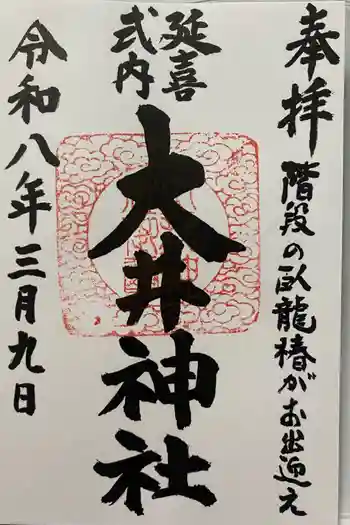 奉拝
階段の臥龍椿がお出迎え
延喜
式内
大井神社
令和八年三月九日